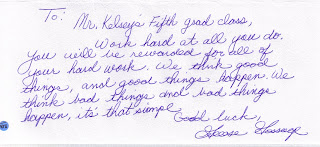 To:
Mr. Kelsey's Fifth grad class,
Work hard at all you do.
You will be rewarded for all of
your hard work. We think good
things, and good things happen. We
think bad things and bad things
happen, it's that simple
Good luck,